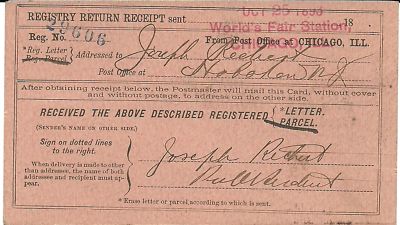 REGISTRY RETURN RECEIPT sent 18
OCT 25 1893
World's Fair Station,
CHICAGO
Reg. No. 29606 From Post Office at CHICAGO, ILL.
*Reg. Letter
Reg. Parcel } Addressed to Joseph
Post Office at Hoboken N J
After obtaining receipt below, the Postmaster will mail this Card, without cover
and without postage, to address on the other side.
RECEIVED THE ABOVE DESCRIBED REGISTERED { *LETTER.
PARCEL.
(SENDER'S NAME ON OTHER SIDE.)
Sign on dotted lines
to the right.
When delivery is made to other
than addressee, the name of both
addressee and recipient must ap-
pear.
Joseph
* Erase letter or parcel according to which is sent.